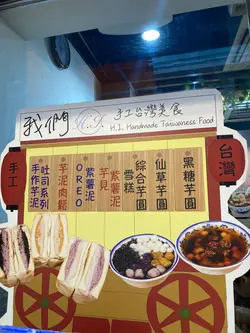 我們
手工台灣美食
H.I. Handmade Taiwaness Food
手工
台灣
黑糖芋圓
仙草芋圓
綜合芋圓
雪糕
紫薯泥
芋見
紫薯泥
OREO
芋泥肉鬆
吐司系列
手作芋泥